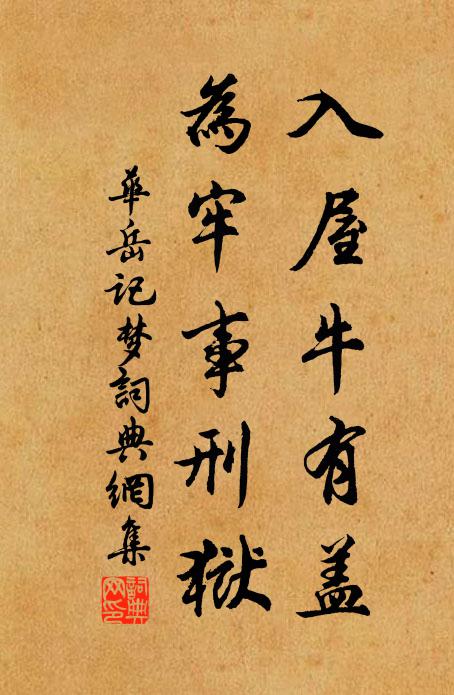 入屋牛有盖
為牢事刑獄
華岳记梦詞典網集
詞典網印